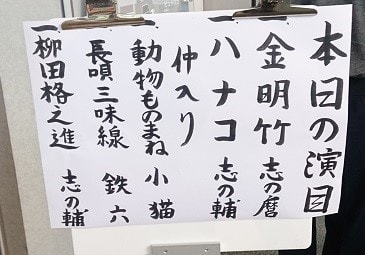 本日の演目
一金明竹 志の麿
一ハナコ 志の輔
仲入り
動物ものまね 小猫
長唄三味線 鉄六
一柳田格之進 志の輔